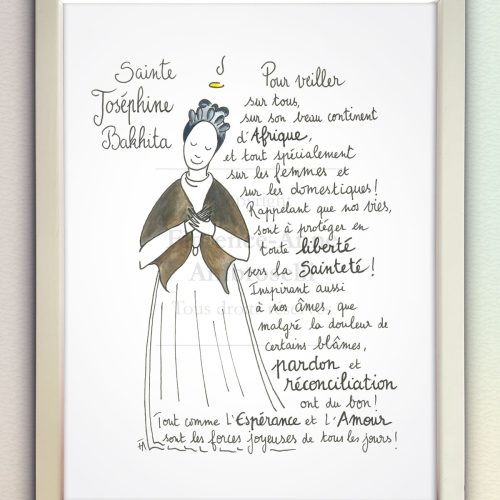 Sainte
Joséphine
Bakhita
Pour veiller
sur tous,
sur son beau continent
d'Afrique,
et tout spécialement
sur les femmes et
sur les domestiques !
Rappelant que nos vies,
sont à protéger en
toute liberté
vers la Sainteté !
Inspirant aussi
à nos âmes, que
malgré la douleur de
certains blâmes,
pardon et
réconciliation
ont du bon !
Tout comme L'Espérance et L'Amour
sont les forces joyeuses de tous les jours !